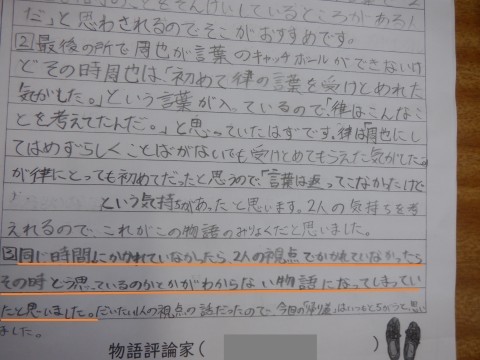 だ」と思わされるのでそこがおすすめです。
2 最後の所で周也が言葉のキャッチボールができないけ
どその時周也は、「初めて律の言葉を受けとめれた
気がした。」という言葉が入っているので、「律はこんなこ
とを考えてたんだ。」と思っていたはずです。律は「周也にし
てはめずらしくことばがないでも受けとめてもらえた気がした」
が律にとっても初めてだったと思うので、「言葉は返ってこなかったけど
という気持ちがあったと思います。2人の気持ちを考
えれるので、これがこの物語のみりょくだと思いました。
3 同じ時間にかかれていなかったら、2人の視点でかかれていなかったら
その時どう思っているのかとかがわからない物語になってしまってい
たと思いました。だいたい1人の視点の話だったので、今回の「帰り道」はいつもとちがうと思い
ました。
物語評論家( )